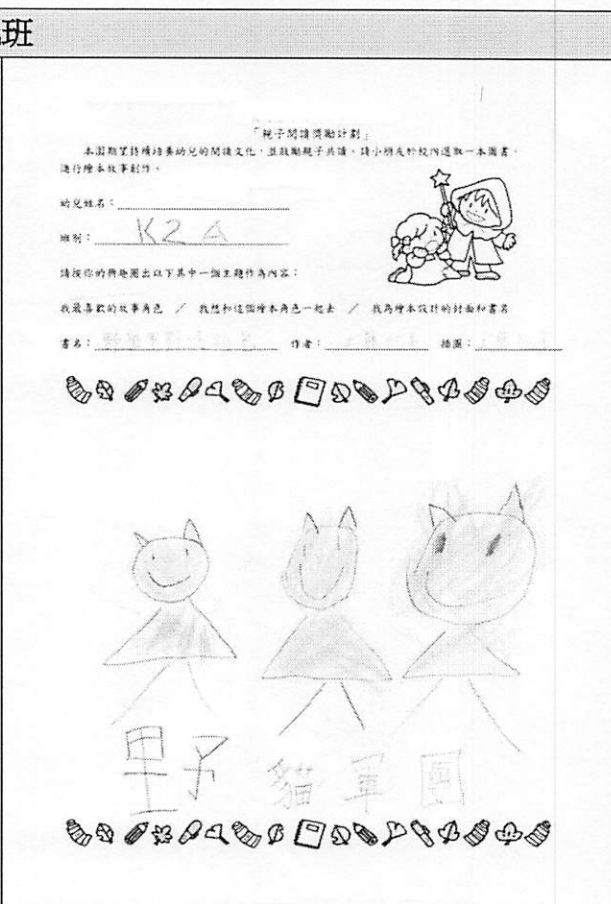 班
「親子閱讀獎勵計劃」
本園期望持續培養幼兒的閱讀文化,並鼓勵親子共讀。請小朋友於校內選取一本圖書,
進行繪本故事創作。
幼兒姓名:
班別:K2A
請按你的興趣圈出以下其中一個主題作為內容:
我最喜歡的故事角色 / 我想和這個繪本角色一起去 / 我為繪本設計的封面和書名
書名: 作者: 插圖:
野貓軍團